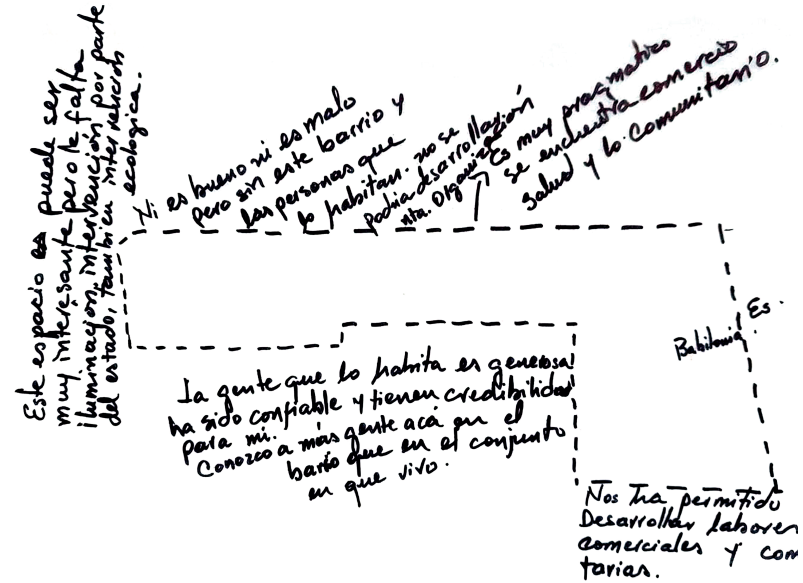 Este espacio es puede ser
muy interesante pero le falta
iluminación, intervención por parte
del estado, también intervención
ecologica.
Ni es bueno ni es malo
pero sin este barrio y
las personas que
lo habitan. no se
podia desarrollar
nta. Organización
Es muy pragmatico
se encuentra comercio
salud y lo comunitario.
Es.
Babilonia.
La gente que lo habita es generosa
ha sido confiable y tienen credibilidad
para mi.
Conozco a más gente acá en el
barrio que en el conjunto
en que vivo.
Nos ha permitido
Desarrollar labores
comerciales y com
tarias.